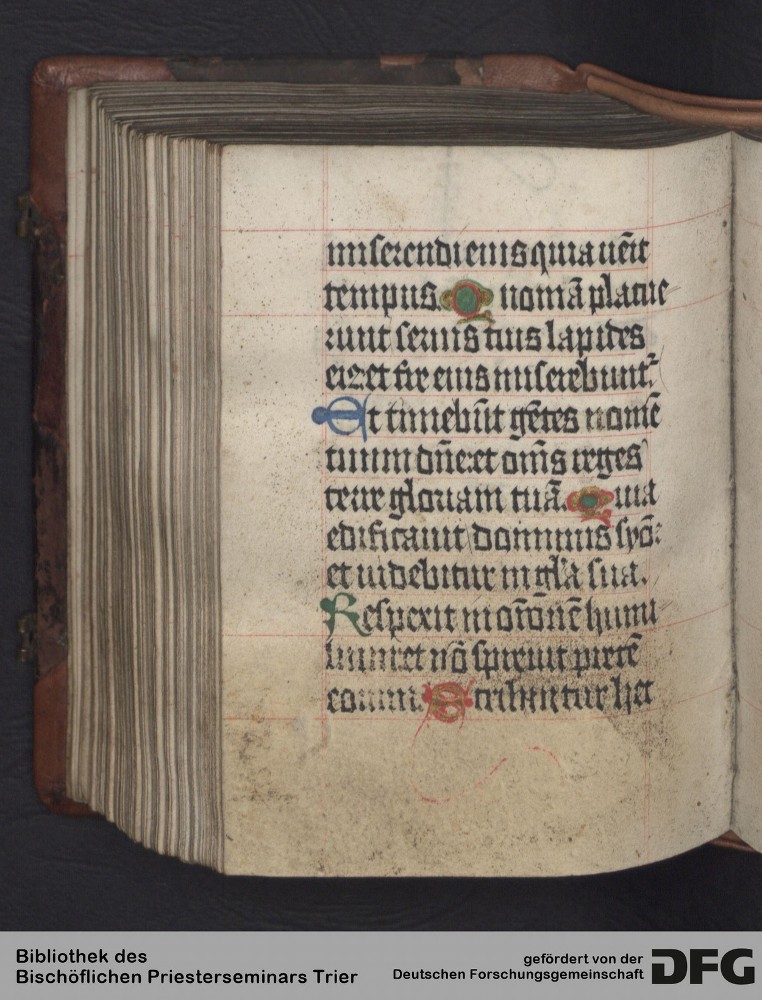 miserendi eius quia uēit
tempus. Quoniā placue
runt seruis tuis lapides
eiꝰ et tr̄e eius miserebunt᷑.
Et timebūt gētes nomē
tuum dn̄e: et om̄s reges
terre gloriam tuā. Quia
edificauit dominus syō:
et uidebitur in gl̄a sua.
Respexit in or̄onē humi
lium: et nō spreuit p̄cē
eorum. Scribantur hec
Bibliothek des
Bischöflichen Priesterseminars Trier
gefördert von der
Deutschen Forschungsgemeinschaft
DFG